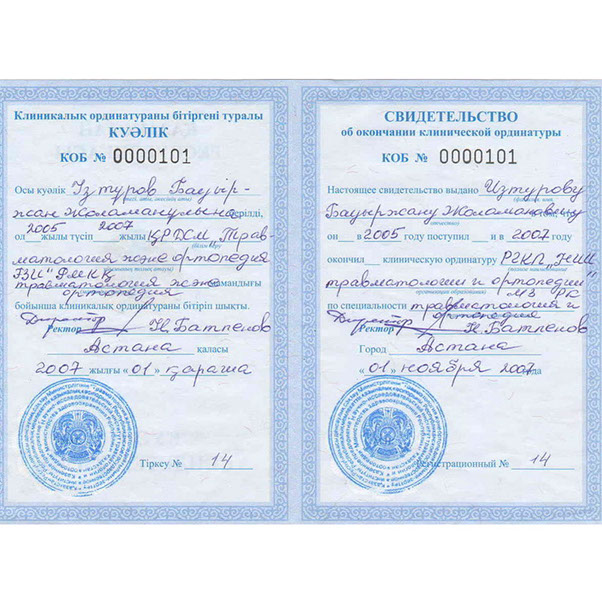 Клиникалық ординатураны бітіргені туралы
КУӘЛІК
КОБ № 0000101
Осы куәлік Ізтуров Бауыр-
жан Жоламанұлына берілді,
ол 2005 жылы түсіп 2007 жылы ҚРДСМ „Трав-
матология және ортопедия
ҒЗИ" РМҚК
травматология және мамандығы
ортопедия
бойынша клиникалық ординатураны бітіріп шықты.
Директор
Ректор Н.Батпенов
Астана қаласы
2007 жылғы «01» қараша
Тіркеу № 14
СВИДЕТЕЛЬСТВО
об окончании клинической ординатуры
КОБ № 0000101
Настоящее свидетельство выдано Изтурову
Бауыржану Жоламановичу
он в 2005 году поступил и в 2007 году
окончил клиническую ординатуру РГКП „НИИ
травматологии и ортопедии"
МЗ РК
по специальности травматология и
ортопедия
Директор
Ректор Н.Батпенов
Город Астана
«01» ноября 2007 года
Регистрационный № 14